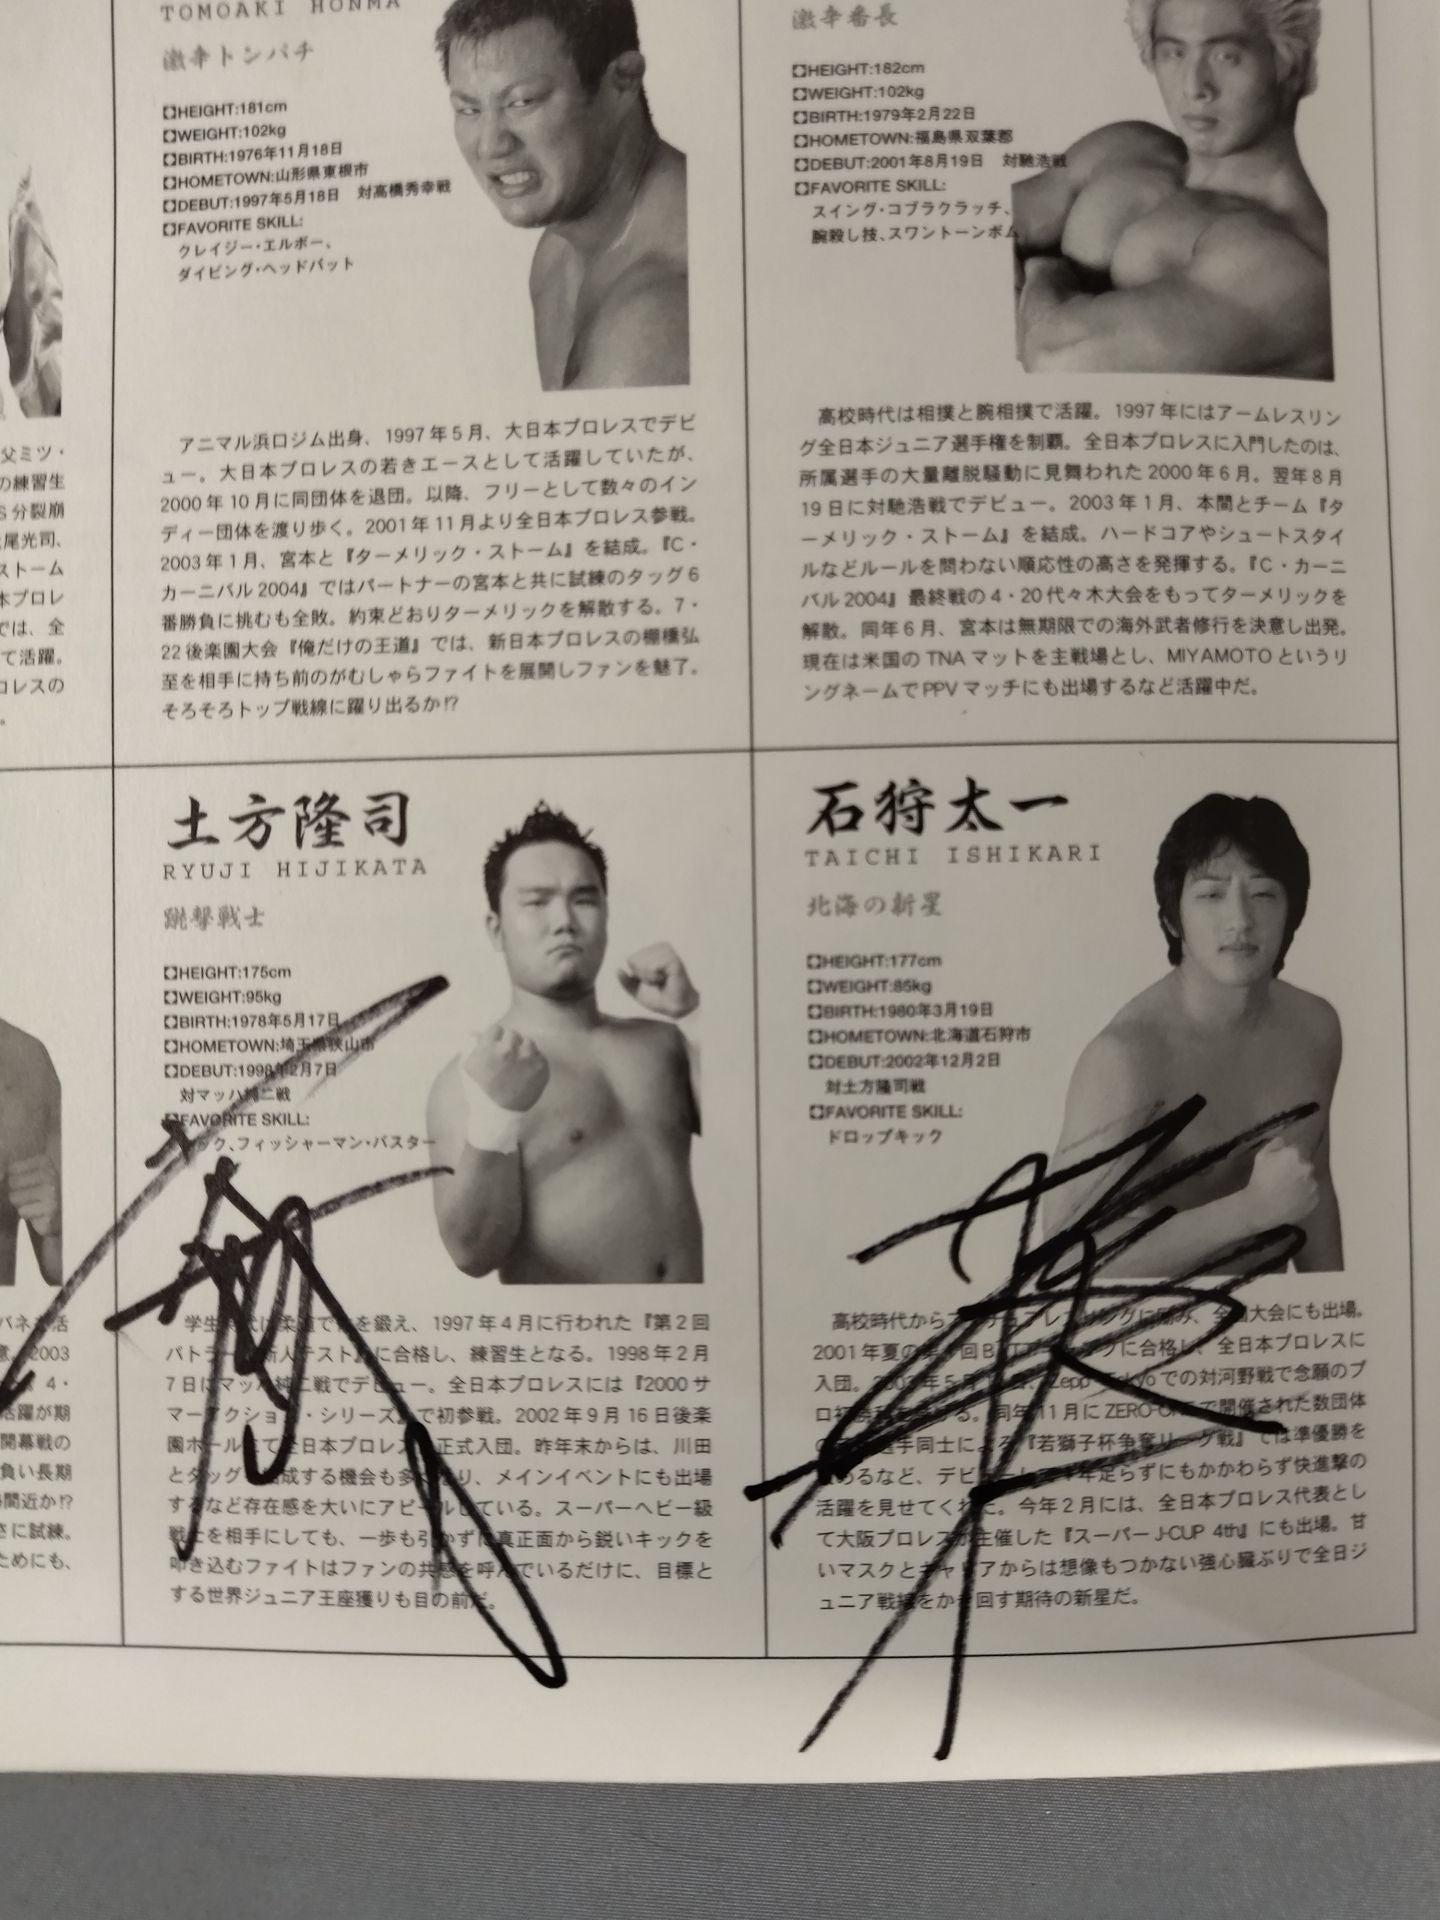 TOMOAKI HONMA
激辛トンパチ
HEIGHT:181cm
WEIGHT:102kg
BIRTH:1976年11月18日
HOMETOWN:山形県東根市
DEBUT:1997年5月18日 対高橋秀幸戦
FAVORITE SKILL:
クレイジー・エルボー、
ダイビング・ヘッドバット
アニマル浜口ジム出身、1997年5月、大日本プロレスでデビ
ュー。大日本プロレスの若きエースとして活躍していたが、
2000年10月に同団体を退団。以降、フリーとして数々のイン
ディー団体を渡り歩く。2001年11月より全日本プロレス参戦。
2003年1月、宮本と『ターメリック・ストーム』を結成。『C・
カーニバル2004』ではパートナーの宮本と共に試練のタッグ6
番勝負に挑むも全敗。約束どおりターメリックを解散する。7・
22後楽園大会『俺だけの王道』では、新日本プロレスの棚橋弘
至を相手に持ち前のがむしゃらファイトを展開しファンを魅了。
そろそろトップ戦線に躍り出るか!?
激辛番長
HEIGHT:182cm
WEIGHT:102kg
BIRTH:1979年2月22日
HOMETOWN:福島県双葉郡
DEBUT:2001年8月19日 対馳浩戦
FAVORITE SKILL:
スイング・コブラクラッチ、
腕殺し技、スワントーンボム
高校時代は相撲と腕相撲で活躍。1997年にはアームレスリン
グ全日本ジュニア選手権を制覇。全日本プロレスに入門したのは、
所属選手の大量離脱騒動に見舞われた2000年6月。翌年8月
19日に対馳浩戦でデビュー。2003年1月、本間とチーム『タ
ーメリック・ストーム』を結成。ハードコアやシュートスタイ
ルなどルールを問わない順応性の高さを発揮する。『C・カーニ
バル2004』最終戦の4・20代々木大会をもってターメリックを
解散。同年6月、宮本は無期限での海外武者修行を決意し出発。
現在は米国のTNAマットを主戦場とし、MIYAMOTOというリ
ングネームでPPVマッチにも出場するなど活躍中だ。
父ミツ・
の練習生
S分裂崩
尾光司、
ストーム
本プロレ
では、全
て活躍。
ロレスの
。
土方隆司
RYUJI HIJIKATA
蹴撃戦士
HEIGHT:175cm
WEIGHT:95kg
BIRTH:1978年5月17日
HOMETOWN:埼玉県狭山市
DEBUT:1998年2月7日
対マッハ純二戦
FAVORITE SKILL:
ック、フィッシャーマン・バスター
学生時代は柔道で体を鍛え、1997年4月に行われた『第2回
バトラーツ新人テスト』に合格し、練習生となる。1998年2月
7日にマッハ純二戦でデビュー。全日本プロレスには『2000サ
マーアクション・シリーズ』で初参戦。2002年9月16日後楽
園ホールにて全日本プロレスに正式入団。昨年末からは、川田
とタッグを結成する機会も多くなり、メインイベントにも出場
するなど存在感を大いにアピールしている。スーパーヘビー級
戦士を相手にしても、一歩も引かずに真正面から鋭いキックを
叩き込むファイトはファンの共感を呼んでいるだけに、目標と
する世界ジュニア王座獲りも目の前だ。
石狩太一
TAICHI ISHIKARI
北海の新星
HEIGHT:177cm
WEIGHT:85kg
BIRTH:1980年3月19日
HOMETOWN:北海道石狩市
DEBUT:2002年12月2日
対土方隆司戦
FAVORITE SKILL:
ドロップキック
高校時代からアマチュアレスリングに励み、全国大会にも出場。
2001年夏の 回B に合格し、全日本プロレスに
入団。2003年5月 Zepp Tokyoでの対河野戦で念願のプ
ロ初勝利を る。同年11月にZERO-ONEで開催された数団体
の 選手同士による『若獅子杯争奪リーグ戦』では準優勝を
収めるなど、デビューして1年足らずにもかかわらず快進撃の
活躍を見せてくれた。今年2月には、全日本プロレス代表とし
て大阪プロレスが主催した『スーパーJ-CUP 4th』にも出場。甘
いマスクとキャリアからは想像もつかない強心臓ぶりで全日ジ
ュニア戦線をかき回す期待の新星だ。
バネを活
2003
4・
活躍が期
開幕戦の
負い長期
間近か!?
さに試練。
ためにも、